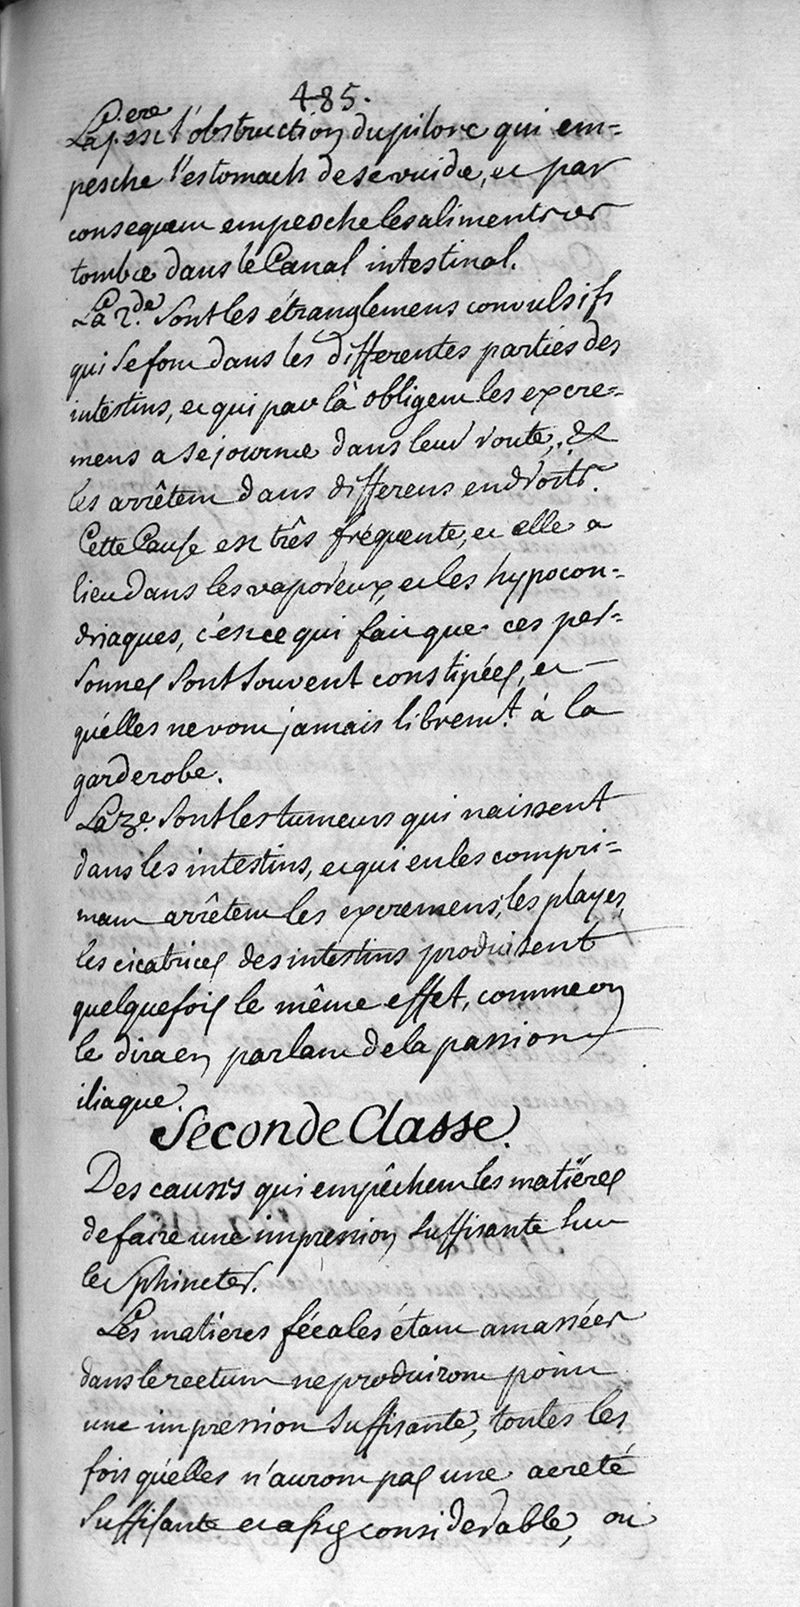 485.
La p.ere est l'obstruction du pilore qui em=
pesche l'estomach de se vuider, et par
consequent empesche les alimens de
tomber dans le Canal intestinal.
La 2.de sont les étranglemens convulsifs
qui se font dans les differentes parties des
intestins, et qui par là obligent les excre=
mens a sejourner dans leur route, &
les arrêtent dans differens endroits.
Cette Cause est très fréquente, et elle a
lieu dans les vaporeux, et les hypocon=
driaques, c'est ce qui fait que ces per=
sonnes sont souvent constipées, et
qu'elles ne vont jamais librem.t à la
garderobe.
La 3e. sont les tumeurs qui naissent
dans les intestins, et qui en les compri=
mant arrêtent les excremens, les playes,
les cicatrices des intestins produisent
quelquefois le même effet, comme on
le dira en parlant de la passion
iliaque.
Seconde Classe.
Des causes qui empêchent les matières
de faire une impression suffisante sur
le Sphincter.
Les matieres fécales étant amassées
dans le rectum ne produiront point
une impression suffisante, toutes les
fois qu'elles n'auront pas une acreté
suffisante et assez considerable, ou